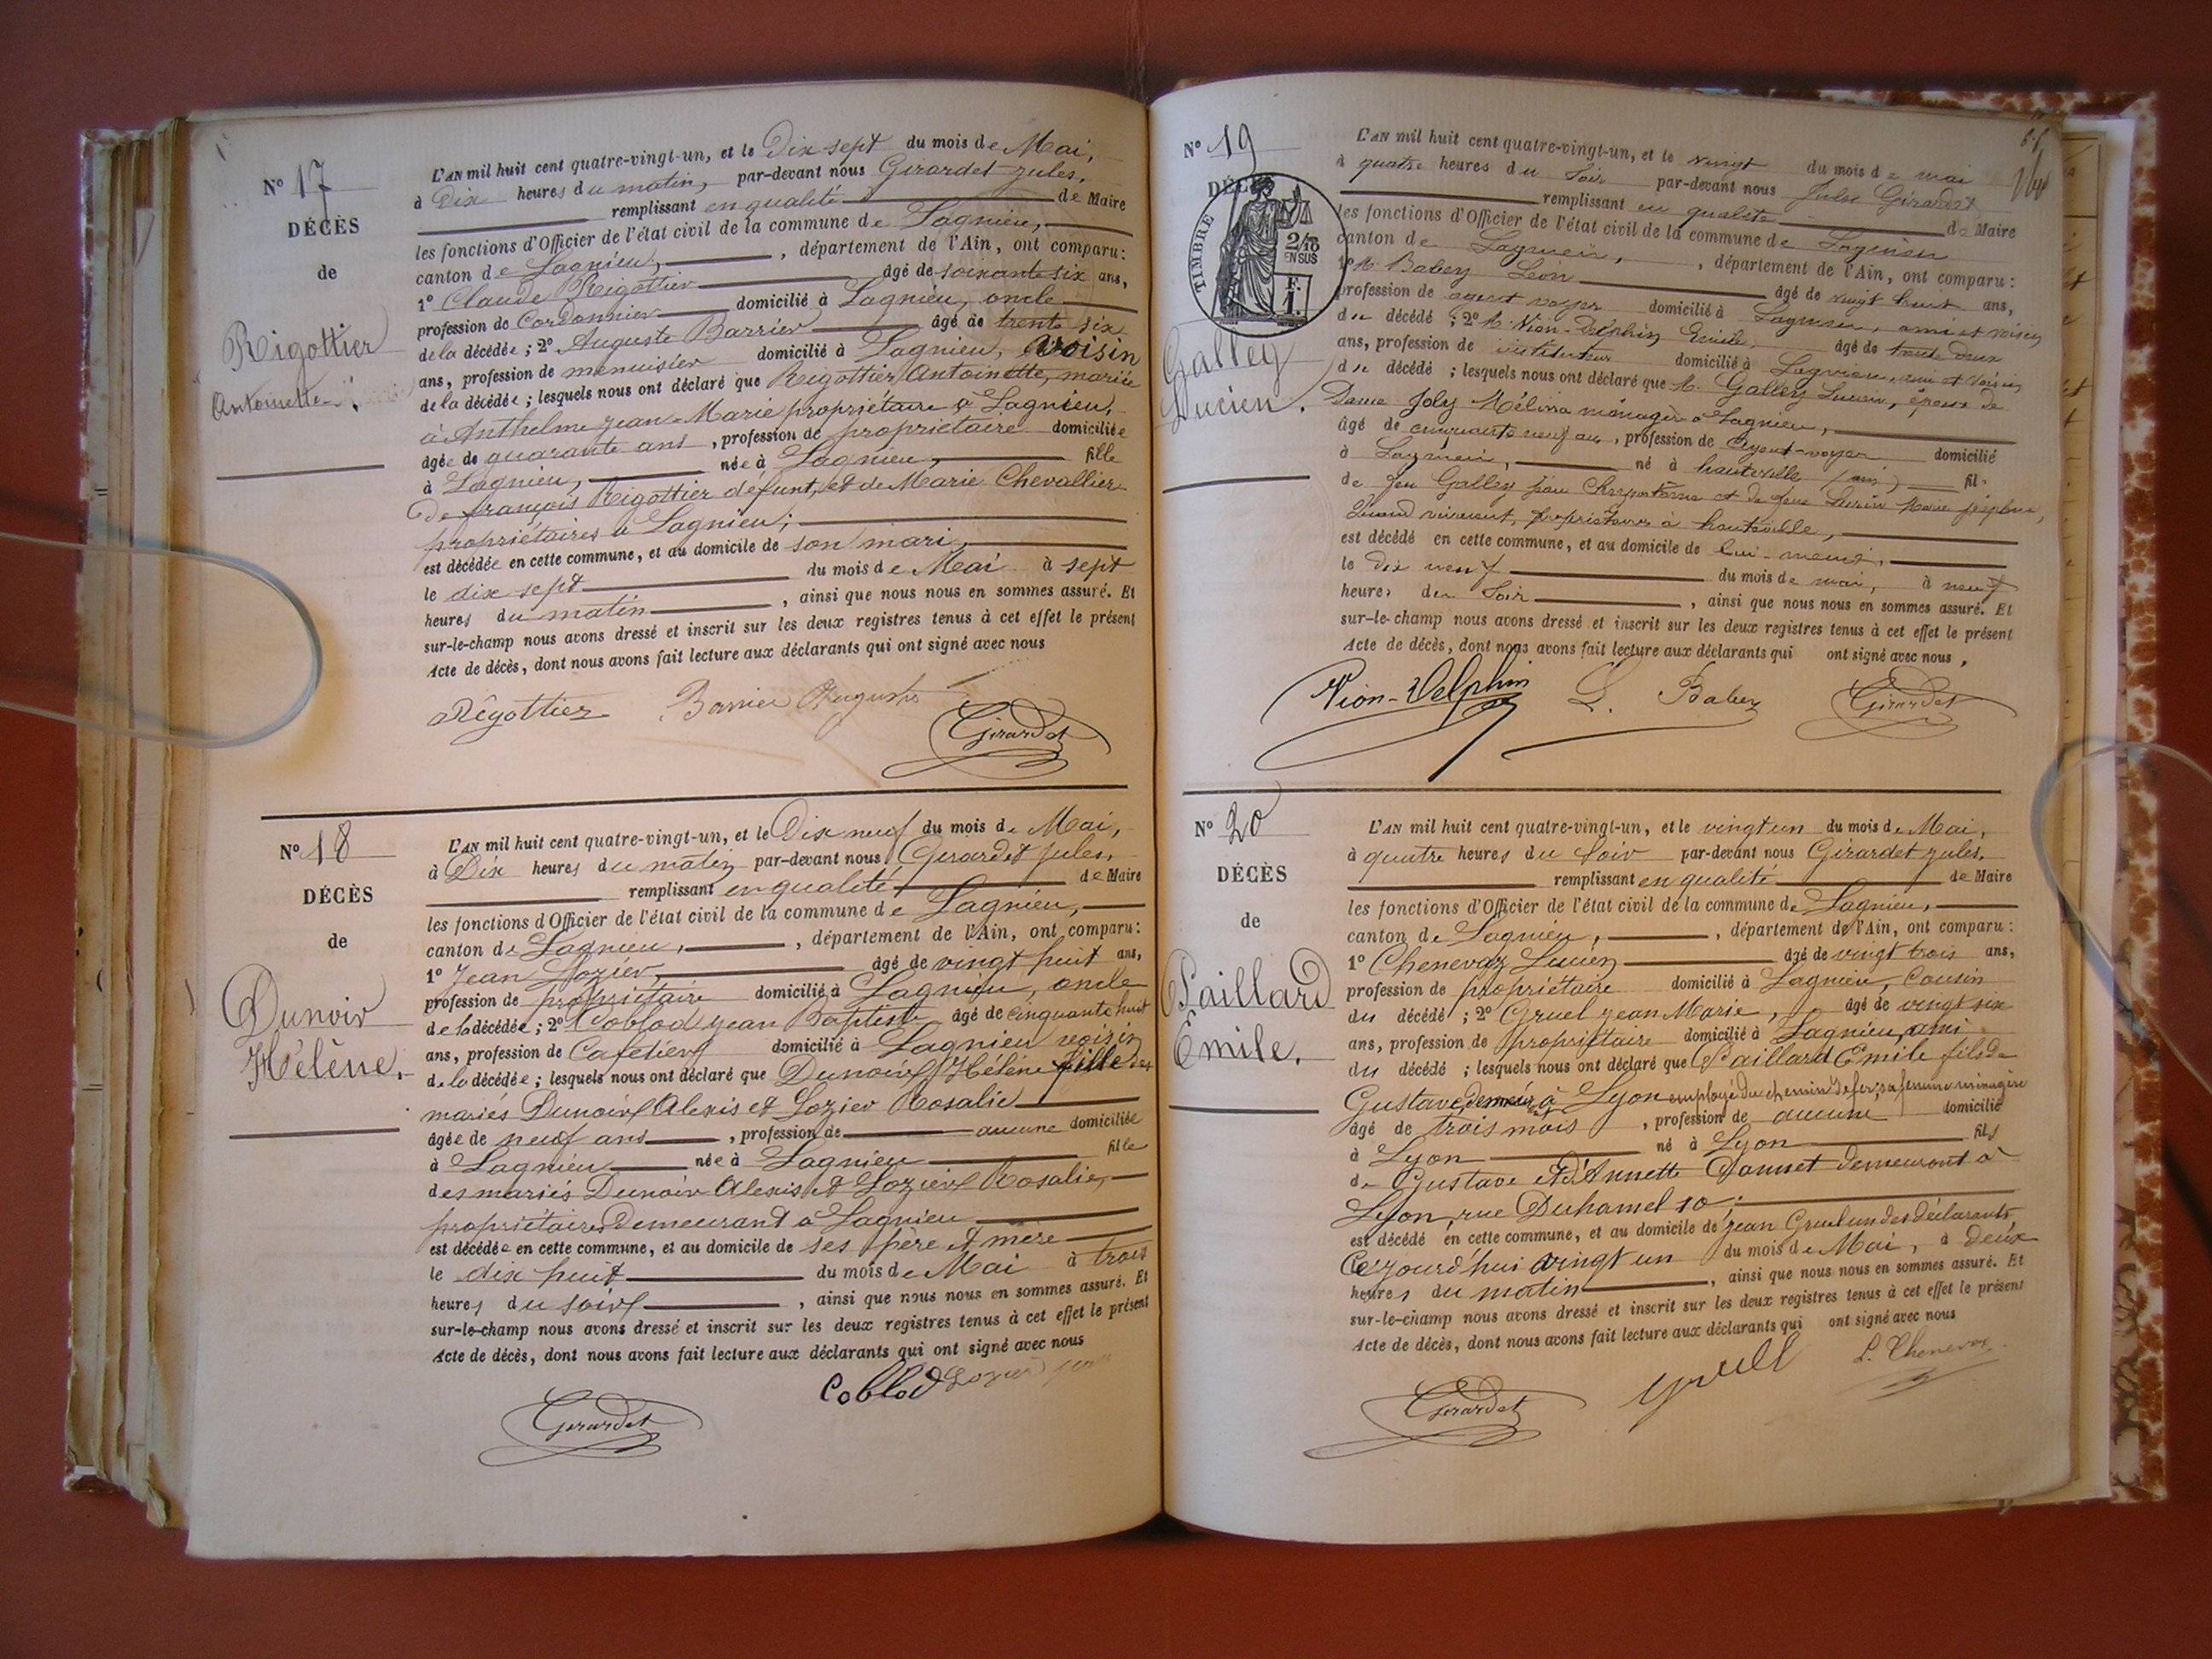 N° 17
DÉCÈS
de
Rigottier
Antoinette
L'AN mil huit cent quatre-vingt-un, et le Dix sept du mois de Mai,
à Dix heures du matin, par-devant nous Girardet jules,
remplissant en qualité de Maire
les fonctions d'Officier de l'état civil de la commune de Lagnieu,
canton de Lagnieu, , département de l'Ain, ont comparu:
1° Claude Rigottier âgé de soixante six ans,
profession de Cordonnier domicilié à Lagnieu, oncle
de la décédée; 2° Auguste Barrier âgé de trente six
ans, profession de menuisier domicilié à Lagnieu, voisin
de la décédée; lesquels nous ont déclaré que Rigottier Antoinette, mariée
à Anthelme jean-Marie propriétaire à Lagnieu,
âgée de quarante ans, profession de propriétaire domiciliée
à Lagnieu, née à Lagnieu, fille
de françois Rigottier défunt, et de Marie Chevallier
propriétaires à Lagnieu;
est décédée en cette commune, et au domicile de son mari,
le dix sept du mois de Mai à sept
heures du matin, ainsi que nous nous en sommes assuré. Et
sur-le-champ nous avons dressé et inscrit sur les deux registres tenus à cet effet le présent
Acte de décès, dont nous avons fait lecture aux déclarants qui ont signé avec nous
Rigottier Barrier Auguste
Girardet
N° 18
DÉCÈS
de
Dunoir
Hélène.
L'AN mil huit cent quatre-vingt-un, et le Dix neuf du mois de Mai,
à Dix heures du matin par-devant nous Girardet jules,
remplissant en qualité de Maire
les fonctions d'Officier de l'état civil de la commune de Lagnieu,
canton de Lagnieu, , département de l'Ain, ont comparu:
1° Jean Lozier, âgé de vingt huit ans,
profession de propriétaire domicilié à Lagnieu, oncle
de la décédée; 2° Coblod jean Baptiste âgé de cinquante huit
ans, profession de Cafetier domicilié à Lagnieu voisin
de la décédée; lesquels nous ont déclaré que Dunoir Hélène fille des
mariés Dunoir Alexis et Lozier Rosalie
âgée de neuf ans, profession de aucune domiciliée
à Lagnieu née à Lagnieu fille
des mariés Dunoir Alexis et Lozier Rosalie,
propriétaires Demeurant à Lagnieu
est décédée en cette commune, et au domicile de ses père et mère
le dix huit du mois de Mai à trois
heures du soir, ainsi que nous nous en sommes assuré. Et
sur-le-champ nous avons dressé et inscrit sur les deux registres tenus à cet effet le présent
Acte de décès, dont nous avons fait lecture aux déclarants qui ont signé avec nous
Coblod Lozier
Girardet
N° 19
DÉCÈS
TIMBRE
2/10
EN SUS
F.
1.
Galley
Lucien.
L'AN mil huit cent quatre-vingt-un, et le vingt du mois de mai
à quatre heures du soir par-devant nous Jules Girardet
remplissant en qualité de Maire
les fonctions d'Officier de l'état civil de la commune de Lagnieu
canton de Lagnieu, , département de l'Ain, ont comparu:
1° M. Babey Léon âgé de vingt huit ans,
profession de agent voyer domicilié à Lagnieu, ami et voisin
du décédé; 2° M. Nion-Delphin Emile, âgé de trente deux
ans, profession de instituteur domicilié à Lagnieu, ami et voisin
du décédé; lesquels nous ont déclaré que M. Galley Lucien, époux de
Dame Joly Mélina ménagère à Lagnieu,
âgé de cinquante neuf ans, profession de Agent-voyer domicilié
à Lagnieu, né à hauteville (ain) fils
de feu Galley et de feue Marie
vivant, propriétaires à hauteville,
est décédé en cette commune, et au domicile de lui-même,
le dix neuf du mois de mai, à neuf
heures du soir, ainsi que nous nous en sommes assuré. Et
sur-le-champ nous avons dressé et inscrit sur les deux registres tenus à cet effet le présent
Acte de décès, dont nous avons fait lecture aux déclarants qui ont signé avec nous,
Nion-Delphin L. Babey Girardet
N° 20
DÉCÈS
de
Paillard
Emile.
L'AN mil huit cent quatre-vingt-un, et le vingt un du mois de Mai,
à quatre heures du soir par-devant nous Girardet jules,
remplissant en qualité de Maire
les fonctions d'Officier de l'état civil de la commune de Lagnieu,
canton de Lagnieu, , département de l'Ain, ont comparu:
1° Chenevaz Lucien âgé de vingt trois ans,
profession de propriétaire domicilié à Lagnieu, Cousin
du décédé; 2° Gruel jean Marie, âgé de vingt six
ans, profession de propriétaire domicilié à Lagnieu, ami
du décédé; lesquels nous ont déclaré que Paillard Emile fils de
Gustave à Lyon employé du chemin de fer, sa femme ménagère
âgé de trois mois, profession de aucune domicilié
à Lyon né à Lyon fils
de Gustave et d'Annette demeurant à
Lyon, rue Duhamel 10;
est décédé en cette commune, et au domicile de jean Gruel un des déclarants,
Cejourd'hui vingt un du mois de Mai, à deux
heures du matin, ainsi que nous nous en sommes assuré. Et
sur-le-champ nous avons dressé et inscrit sur les deux registres tenus à cet effet le présent
Acte de décès, dont nous avons fait lecture aux déclarants qui ont signé avec nous
Girardet Gruel L. Chenevaz